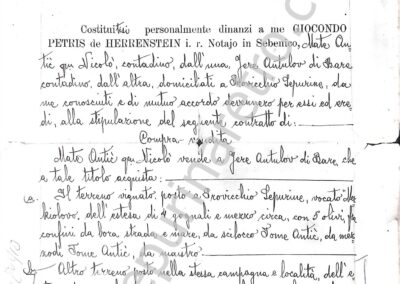 Costituitisi personalmente dinanzi a me GIOCONDO
PETRIS de HERRENSTEIN i. r. Notajo in Sebenico, Mate An-
tić qm Nicolò, contadino, dall'una, Jere Antulov di Bare
contadino, dall'altra, domiciliati a Provicchio Sepurine, da
me conosciuti e di mutuo accordo devennero per essi ed ere-
di, alla stipulazione del seguente contratto di:
Compra-vendita
Mate Antić qm Nicolò vende a Jere Antulov di Bare, che
a tale titolo acquista:
a. Il terreno vignato, posto a Provicchio Sepurine, vocato
dell'estesa di 4 gognali e mezzo circa, con 5 olivi,
confini da bora strada e mare, da scilocco Tome Antić, da me-
zodì Tome Antić, da maestro
b. Altro terreno posto nella stessa campagna e località, dell'e-